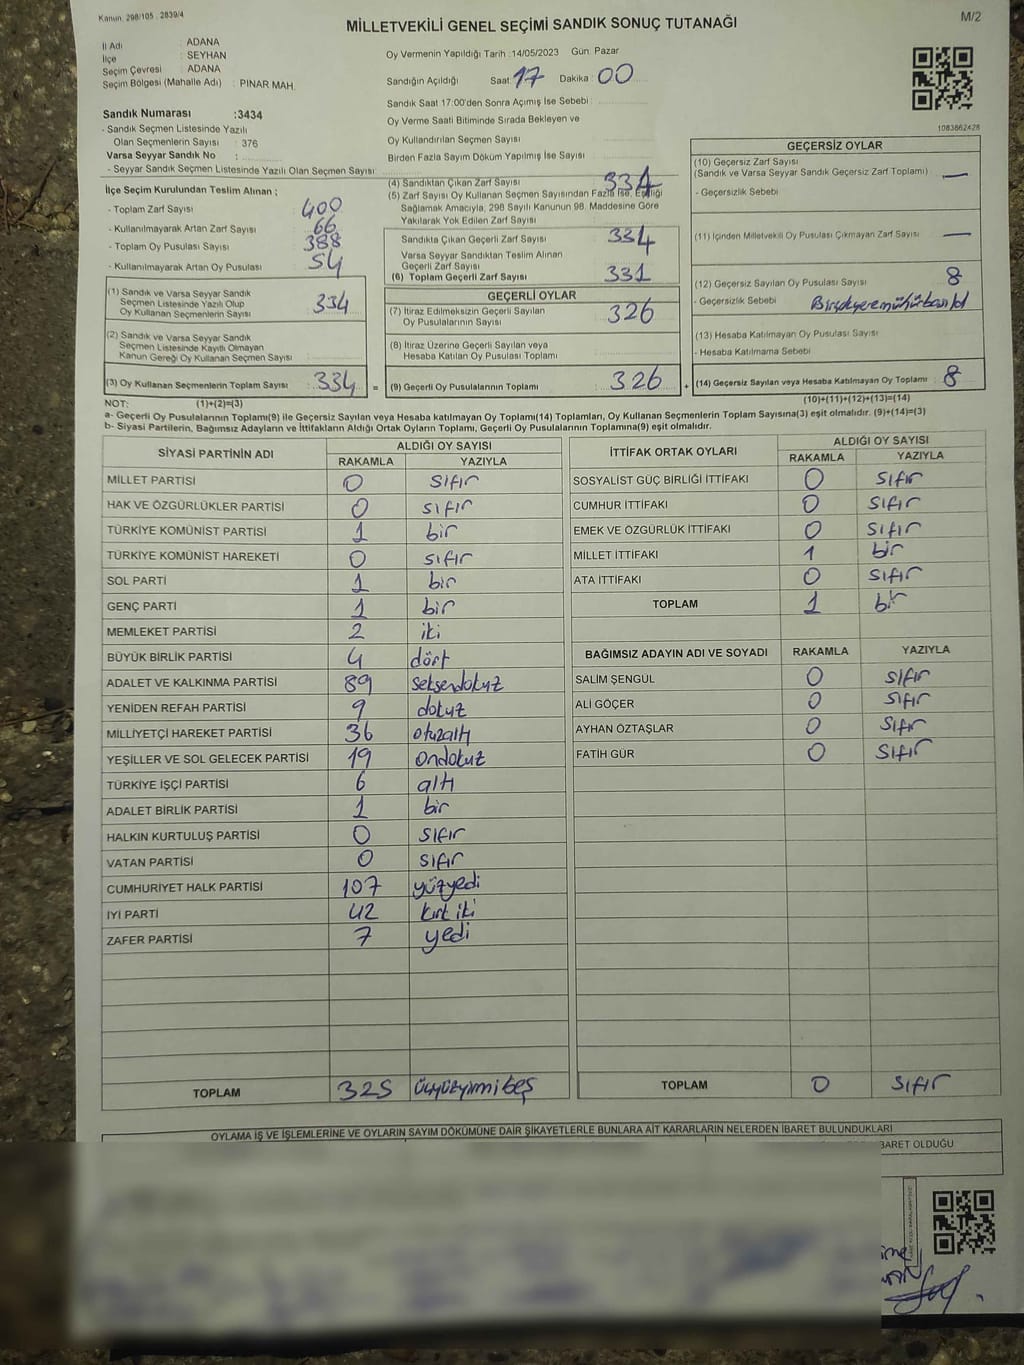 Kanun: 298/105 . 2839/4
M/2
MİLLETVEKİLİ GENEL SEÇİMİ SANDIK SONUÇ TUTANAĞI
İl Adı : ADANA
İlçe : SEYHAN
Seçim Çevresi : ADANA
Seçim Bölgesi (Mahalle Adı) : PINAR MAH.
Oy Vermenin Yapıldığı Tarih :14/05/2023 Gün: Pazar
Sandığın Açıldığı Saat 17 Dakika 00
Sandık Saat 17:00'den Sonra Açılmış İse Sebebi :
Sandık Numarası :3434
- Sandık Seçmen Listesinde Yazılı
Olan Seçmenlerin Sayısı : 376
Varsa Seyyar Sandık No :
- Seyyar Sandık Seçmen Listesinde Yazılı Olan Seçmen Sayısı :
Oy Verme Saati Bitiminde Sırada Bekleyen ve
Oy Kullandırılan Seçmen Sayısı :
Birden Fazla Sayım Döküm Yapılmış İse Sayısı :
1083862428
İlçe Seçim Kurulundan Teslim Alınan ;
- Toplam Zarf Sayısı : 400
- Kullanılmayarak Artan Zarf Sayısı : 66
- Toplam Oy Pusulası Sayısı : 388
- Kullanılmayarak Artan Oy Pusulası : 54
(1) Sandık ve Varsa Seyyar Sandık
Seçmen Listesinde Yazılı Olup
Oy Kullanan Seçmenlerin Sayısı : 334
(2) Sandık ve Varsa Seyyar Sandık
Seçmen Listesinde Kayıtlı Olmayan
Kanun Gereği Oy Kullanan Seçmen Sayısı :
(3) Oy Kullanan Seçmenlerin Toplam Sayısı : 334 =
(4) Sandıktan Çıkan Zarf Sayısı : 334
(5) Zarf Sayısı Oy Kullanan Seçmen Sayısından Fazla İse, Eşitliği
Sağlamak Amacıyla, 298 Sayılı Kanunun 98. Maddesine Göre
Yakılarak Yok Edilen Zarf Sayısı :
Sandıkta Çıkan Geçerli Zarf Sayısı : 334
Varsa Seyyar Sandıktan Teslim Alınan
Geçerli Zarf Sayısı :
(6) Toplam Geçerli Zarf Sayısı : 331
GEÇERLİ OYLAR
(7) İtiraz Edilmeksizin Geçerli Sayılan
Oy Pusulalarının Sayısı : 326
(8) İtiraz Üzerine Geçerli Sayılan veya
Hesaba Katılan Oy Pusulası Toplamı :
(9) Geçerli Oy Pusulalarının Toplamı : 326 +
GEÇERSİZ OYLAR
(10) Geçersiz Zarf Sayısı
(Sandık ve Varsa Seyyar Sandık Geçersiz Zarf Toplamı) : —
- Geçersizlik Sebebi :
(11) İçinden Milletvekili Oy Pusulası Çıkmayan Zarf Sayısı : —
(12) Geçersiz Sayılan Oy Pusulası Sayısı : 8
- Geçersizlik Sebebi :
(13) Hesaba Katılmayan Oy Pusulası Sayısı :
- Hesaba Katılmama Sebebi :
(14) Geçersiz Sayılan veya Hesaba Katılmayan Oy Toplamı : 8
NOT: (1)+(2)=(3)
(10)+(11)+(12)+(13)=(14)
a- Geçerli Oy Pusulalarının Toplamı(9) ile Geçersiz Sayılan veya Hesaba katılmayan Oy Toplamı(14) Toplamları, Oy Kullanan Seçmenlerin Toplam Sayısına(3) eşit olmalıdır. (9)+(14)=(3)
b- Siyasi Partilerin, Bağımsız Adayların ve İttifakların Aldığı Ortak Oyların Toplamı, Geçerli Oy Pusulalarının Toplamına(9) eşit olmalıdır.
SİYASİ PARTİNİN ADI ALDIĞI OY SAYISI
RAKAMLA YAZIYLA
MİLLET PARTİSİ 0 sıfır
HAK VE ÖZGÜRLÜKLER PARTİSİ 0 sıfır
TÜRKİYE KOMÜNİST PARTİSİ 1 bir
TÜRKİYE KOMÜNİST HAREKETİ 0 sıfır
SOL PARTİ 1 bir
GENÇ PARTİ 1 bir
MEMLEKET PARTİSİ 2 iki
BÜYÜK BİRLİK PARTİSİ 4 dört
ADALET VE KALKINMA PARTİSİ 89 seksendokuz
YENİDEN REFAH PARTİSİ 9 dokuz
MİLLİYETÇİ HAREKET PARTİSİ 36 otuzaltı
YEŞİLLER VE SOL GELECEK PARTİSİ 19 ondokuz
TÜRKİYE İŞÇİ PARTİSİ 6 altı
ADALET BİRLİK PARTİSİ 1 bir
HALKIN KURTULUŞ PARTİSİ 0 sıfır
VATAN PARTİSİ 0 sıfır
CUMHURİYET HALK PARTİSİ 107 yüzyedi
İYİ PARTİ 42 kırk iki
ZAFER PARTİSİ 7 yedi
TOPLAM 325 üçyüzyirmibeş
İTTİFAK ORTAK OYLARI ALDIĞI OY SAYISI
RAKAMLA YAZIYLA
SOSYALİST GÜÇ BİRLİĞİ İTTİFAKI 0 sıfır
CUMHUR İTTİFAKI 0 sıfır
EMEK VE ÖZGÜRLÜK İTTİFAKI 0 sıfır
MİLLET İTTİFAKI 1 bir
ATA İTTİFAKI 0 sıfır
TOPLAM 1 bir
BAĞIMSIZ ADAYIN ADI VE SOYADI RAKAMLA YAZIYLA
SALİM ŞENGÜL 0 sıfır
ALİ GÖÇER 0 sıfır
AYHAN ÖZTAŞLAR 0 sıfır
FATİH GÜR 0 sıfır
TOPLAM 0 sıfır
OYLAMA İŞ VE İŞLEMLERİNE VE OYLARIN SAYIM DÖKÜMÜNE DAİR ŞİKAYETLERLE BUNLARA AİT KARARLARIN NELERDEN İBARET BULUNDUKLARI
BARET OLDUĞU